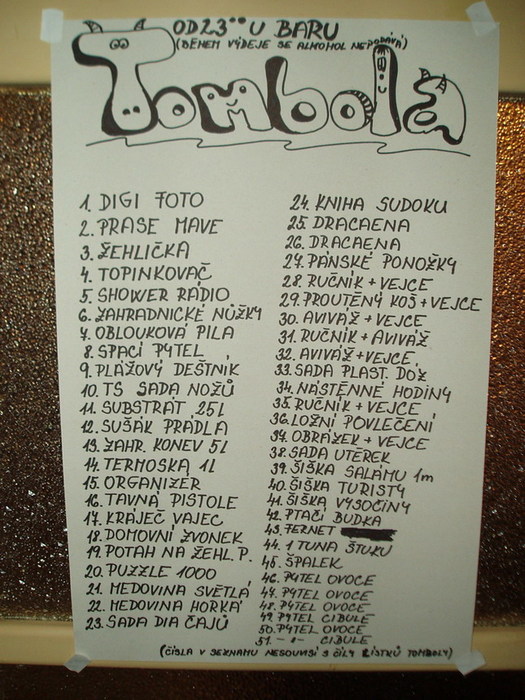 OD 23°° U BARU
(BĚHEM VÝDEJE SE ALKOHOL NEPODÁVÁ)
Tombola
1. DIGI FOTO
2. PRASE MAVE
3. ŽEHLIČKA
4. TOPINKOVAČ
5. SHOWER RÁDIO
6. ZAHRADNICKÉ NŮŽKY
7. OBLOUKOVÁ PILA
8. SPACÍ PYTEL
9. PLÁŽOVÝ DEŠTNÍK
10. TS SADA NOŽŮ
11. SUBSTRÁT 25L
12. SUŠÁK PRÁDLA
13. ZAHR. KONEV 5L
14. TERMOSKA 1L
15. ORGANIZER
16. TAVNÁ PISTOLE
17. KRÁJEČ VAJEC
18. DOMOVNÍ ZVONEK
19. POTAH NA ŽEHL. P.
20. PUZZLE 1000
21. MEDOVINA SVĚTLÁ
22. MEDOVINA HORKÁ
23. SADA DIA ČAJŮ
24. KNIHA SUDOKU
25. DRACAENA
26. DRACAENA
27. PÁNSKÉ PONOŽKY
28. RUČNÍK + VEJCE
29. PROUTĚNÝ KOŠ + VEJCE
30. AVIVÁŽ + VEJCE
31. RUČNÍK + AVIVÁŽ
32. AVIVÁŽ + VEJCE
33. SADA PLAST. DÓZ
34. NÁSTĚNNÉ HODINY
35. RUČNÍK + VEJCE
36. LOŽNÍ POVLEČENÍ
37. OBRÁZEK + VEJCE
38. SADA UTĚREK
39. ŠIŠKA SALÁMU 1m
40. ŠIŠKA TURISTY
41. ŠIŠKA VYSOČINY
42. PTAČÍ BUDKA
43. FERNET
44. 1 TUNA ŠTUKU
45. ŠPALEK
46. PYTEL OVOCE
47. PYTEL OVOCE
48. PYTEL OVOCE
49. PYTEL CIBULE
50. PYTEL OVOCE
51. -"- CIBULE
(ČÍSLA V SEZNAMU NESOUVISÍ S ČÍSLY LÍSTKŮ TOMBOLY)